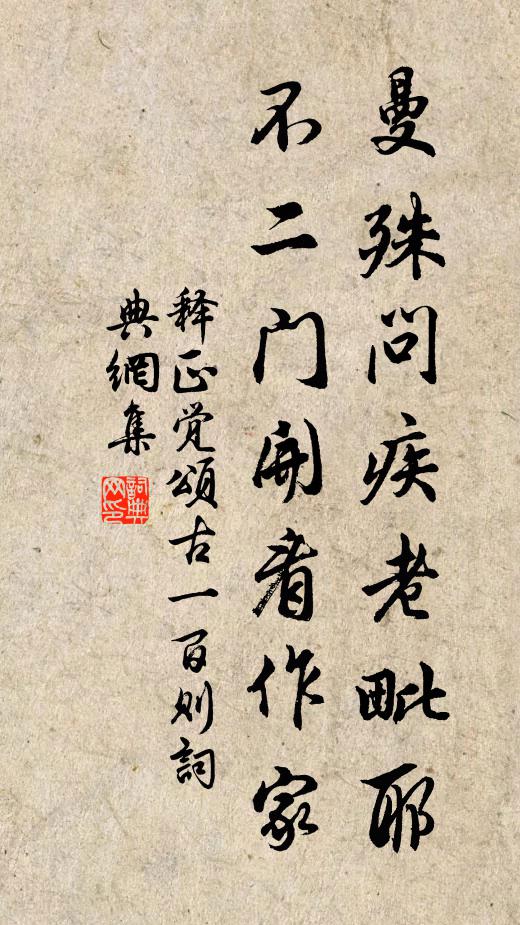 曼殊问疾老毗耶
不二门开看作家
释正觉颂古一百则词
典网集
词典网印